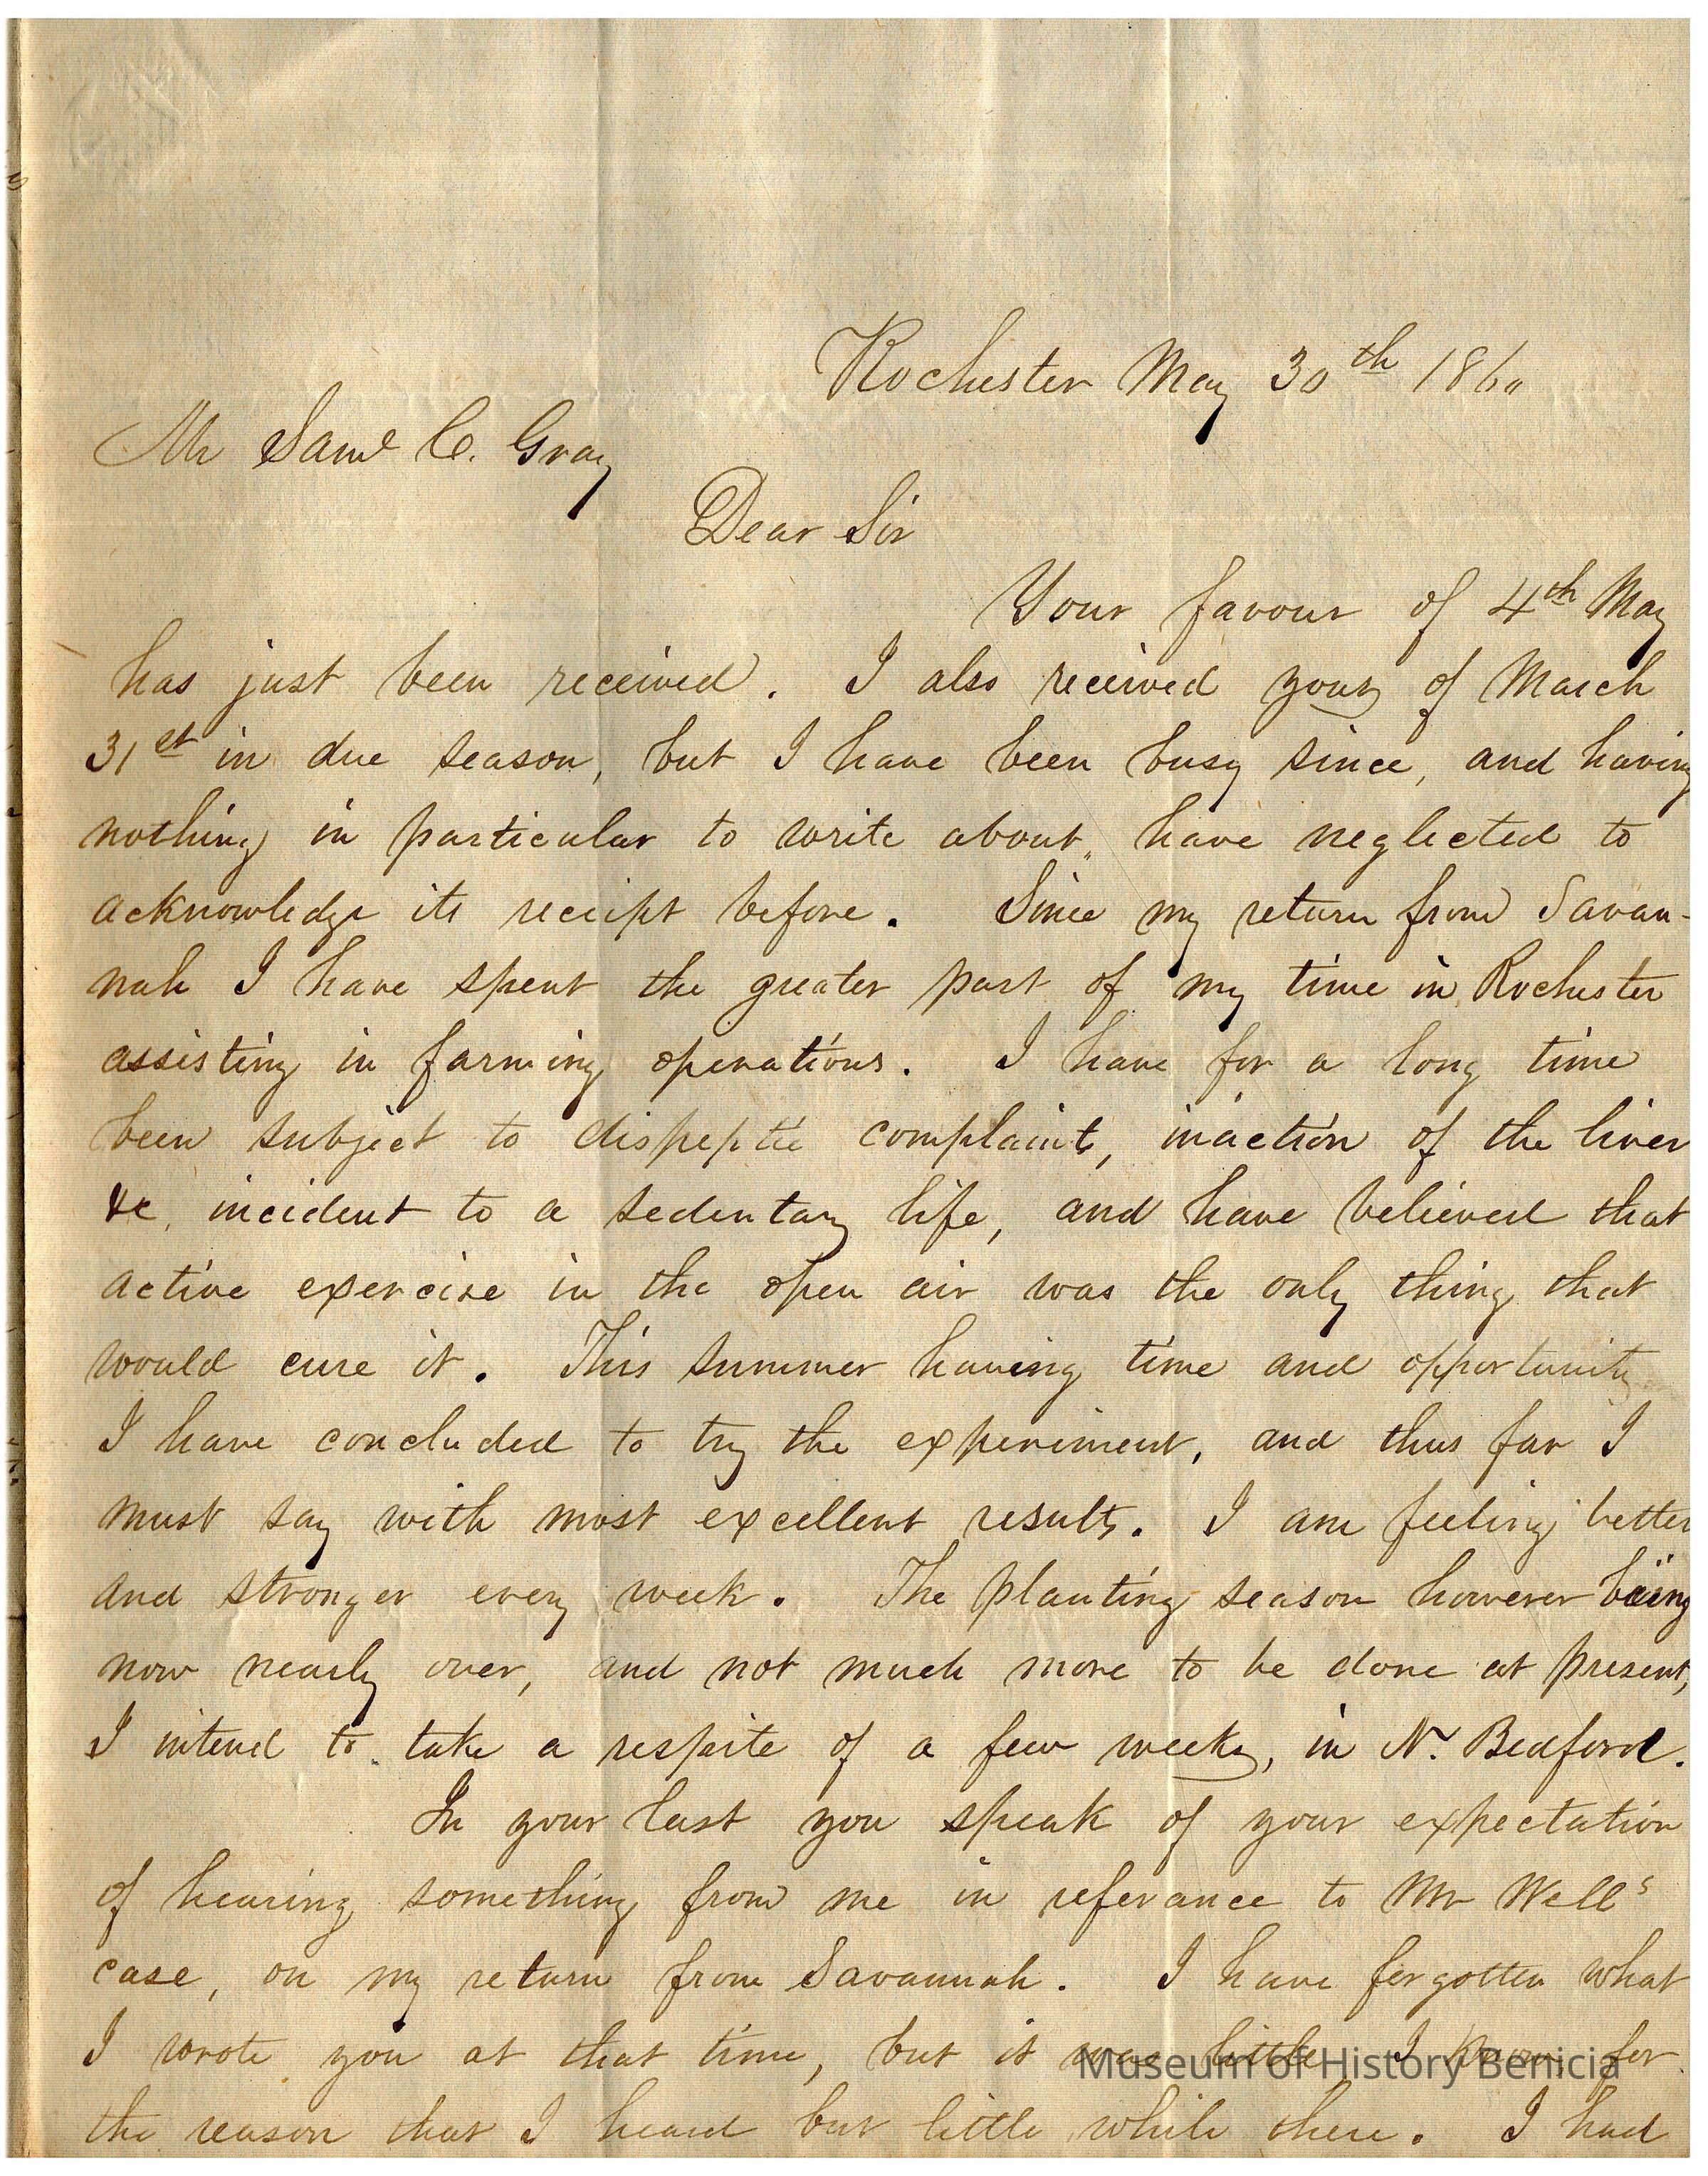 Rochester May 30th 1860
Mr Saml C. Gray
Dear Sir
Your favour of 4th May
has just been received. I also received yours of March
31st in due season, but I have been busy since, and having
nothing in particular to write about, have neglected to
acknowledge its receipt before. Since my return from Savan-
nah I have spent the greater part of my time in Rochester
assisting in farming operations. I have for a long time
been subject to dispeptic complaints, inaction of the liver
&c, incident to a sedentary life, and have believed that
active exercise in the open air was the only thing that
would cure it. This summer having time and opportunity
I have concluded to try the experiment, and thus far I
must say with most excellent results. I am feeling better
and stronger every week. The planting season however being
now nearly over, and not much more to be done at present,
I intend to take a respite of a few weeks, in N. Bedford.
In your last you speak of your expectation
of hearing something from me in referance to Mr Wells
case, on my return from Savannah. I have forgotten what
I wrote you at that time, but it was little I for
the reason that I heard but little while there. I had
Museum of History Benicia